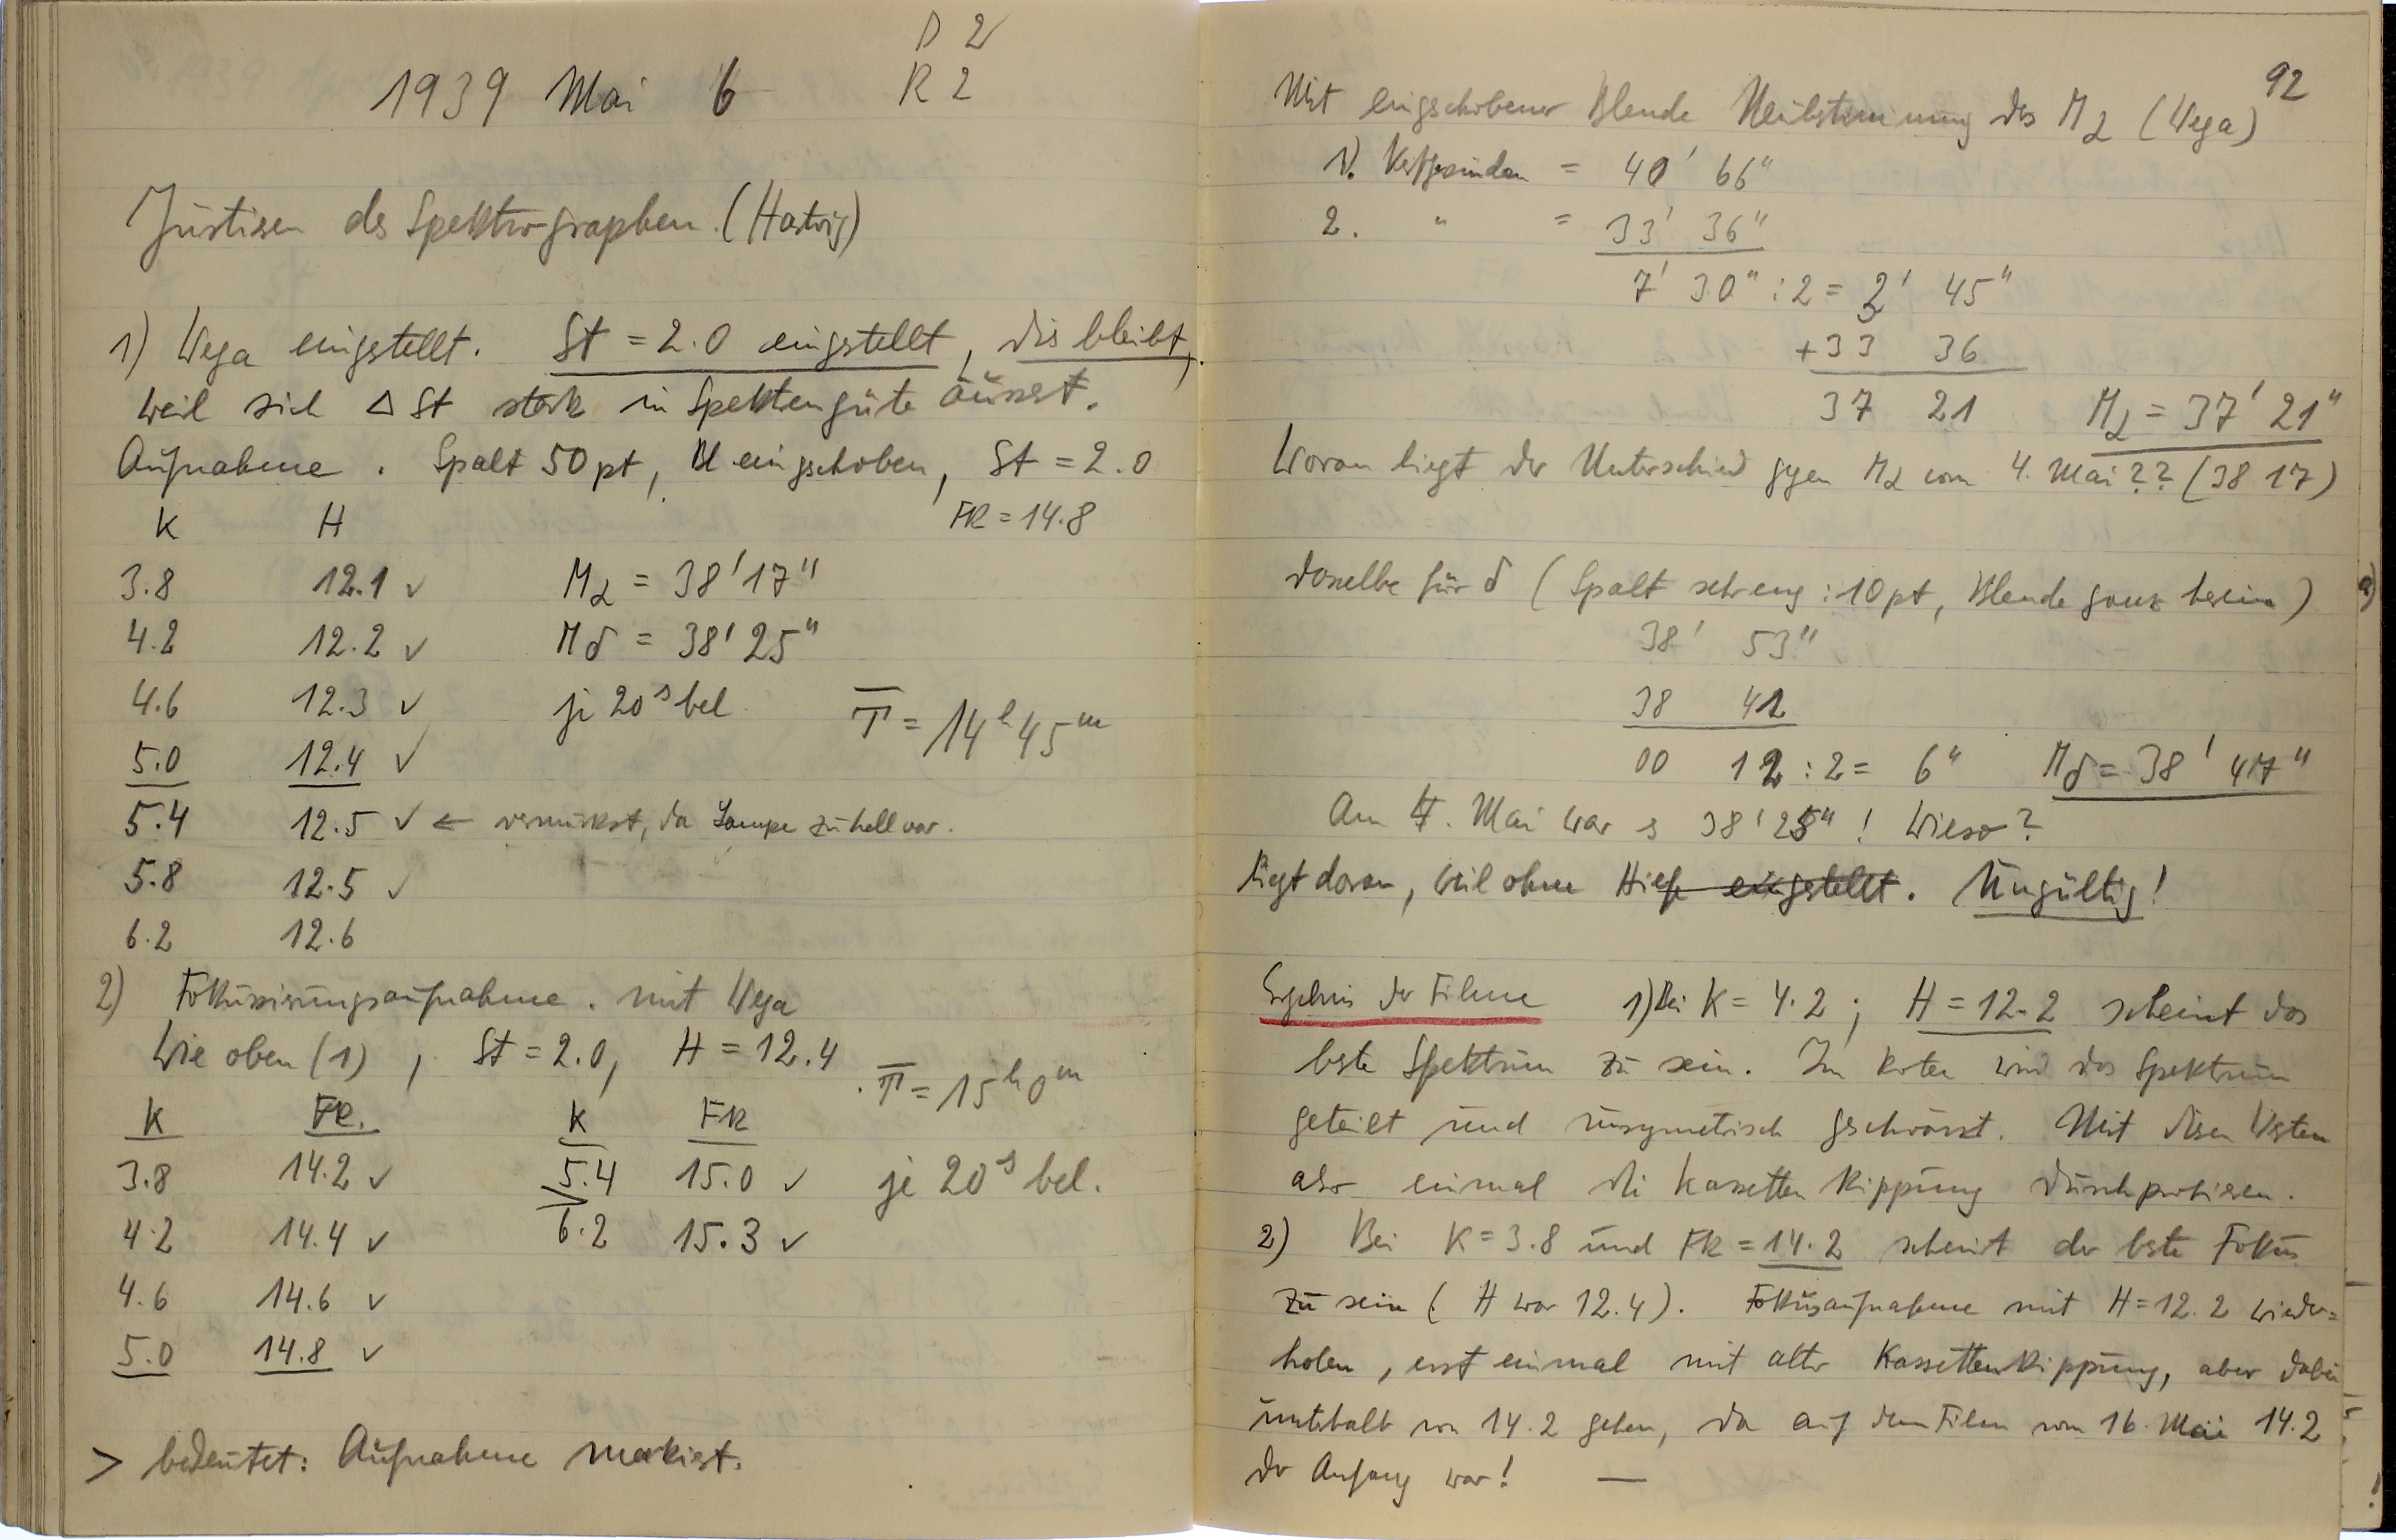 D 2
1939 Mai 6 R 2
Justieren des Spektrographen. (Hartwig)
1) Wega eingestellt. St = 2.0 eingestellt, dies bleibt,
weil sich Δ St stark in Spektrengüte äussert.
Aufnahme. Spalt 50 pt, Bl eingschoben, St = 2.0
K H FR = 14.8
3.8 12.1 ✓ Mα = 38' 17"
4.2 12.2 ✓ Mδ = 38' 25"
4.6 12.3 ✓ je 20ˢ bel. T = 14ʰ 45ᵐ
5.0 12.4 ✓
5.4 12.5 ✓ ← vermurkst, da Lampe zu hell war.
5.8 12.5 ✓
6.2 12.6
2) Fokussierungsaufnahme. mit Wega
Wie oben (1), St = 2.0, H = 12.4. T = 15ʰ 0ᵐ
K FR. K FR
3.8 14.2 ✓ 5.4 15.0 ✓ je 20ˢ bel.
4.2 14.4 ✓ > 6.2 15.3 ✓
4.6 14.6 ✓
5.0 14.8 ✓
> bedeutet: Aufnahme markiert.
92
Mit eingschobener Blende Neubestimmung des Mα (Wega)
1). Verschwinden = 40' 66"
2. " = 33' 36"
7' 30" : 2 = 3' 45"
+ 33 36
37 21 Mα = 37' 21"
Woran liegt der Unterschied gegen Mα vom 4. Mai ?? (38 17)
dasselbe für δ (Spalt sehr eng : 10 pt, Blende ganz herein)
38' 53"
38 41
00 12 : 2 = 6" Mδ = 38' 47"
Am 4. Mai war es 38' 25" ! Wieso ?
liegt daran, weil ohne eingestellt. Ungültig !
Ergebnis der Filme 1) Bei K = 4.2 ; H = 12.2 scheint das
beste Spektrum zu sein. Im Roten wird das Spektrum
geteilt und unsymetrisch geschwärzt. Mit diesen Werten
also einmal die Kassettenkippung durchprobieren.
2) Bei K = 3.8 und FR = 14.2 scheint der beste Fokus
zu sein ( H war 12.4). Fokusaufnahme mit H = 12.2 wieder=
holen, erst einmal mit alter Kassettenkippung, aber dabei
unterhalb von 14.2 gehen, da auf dem Filem vom 16. Mai 14.2
der Anfang war ! —